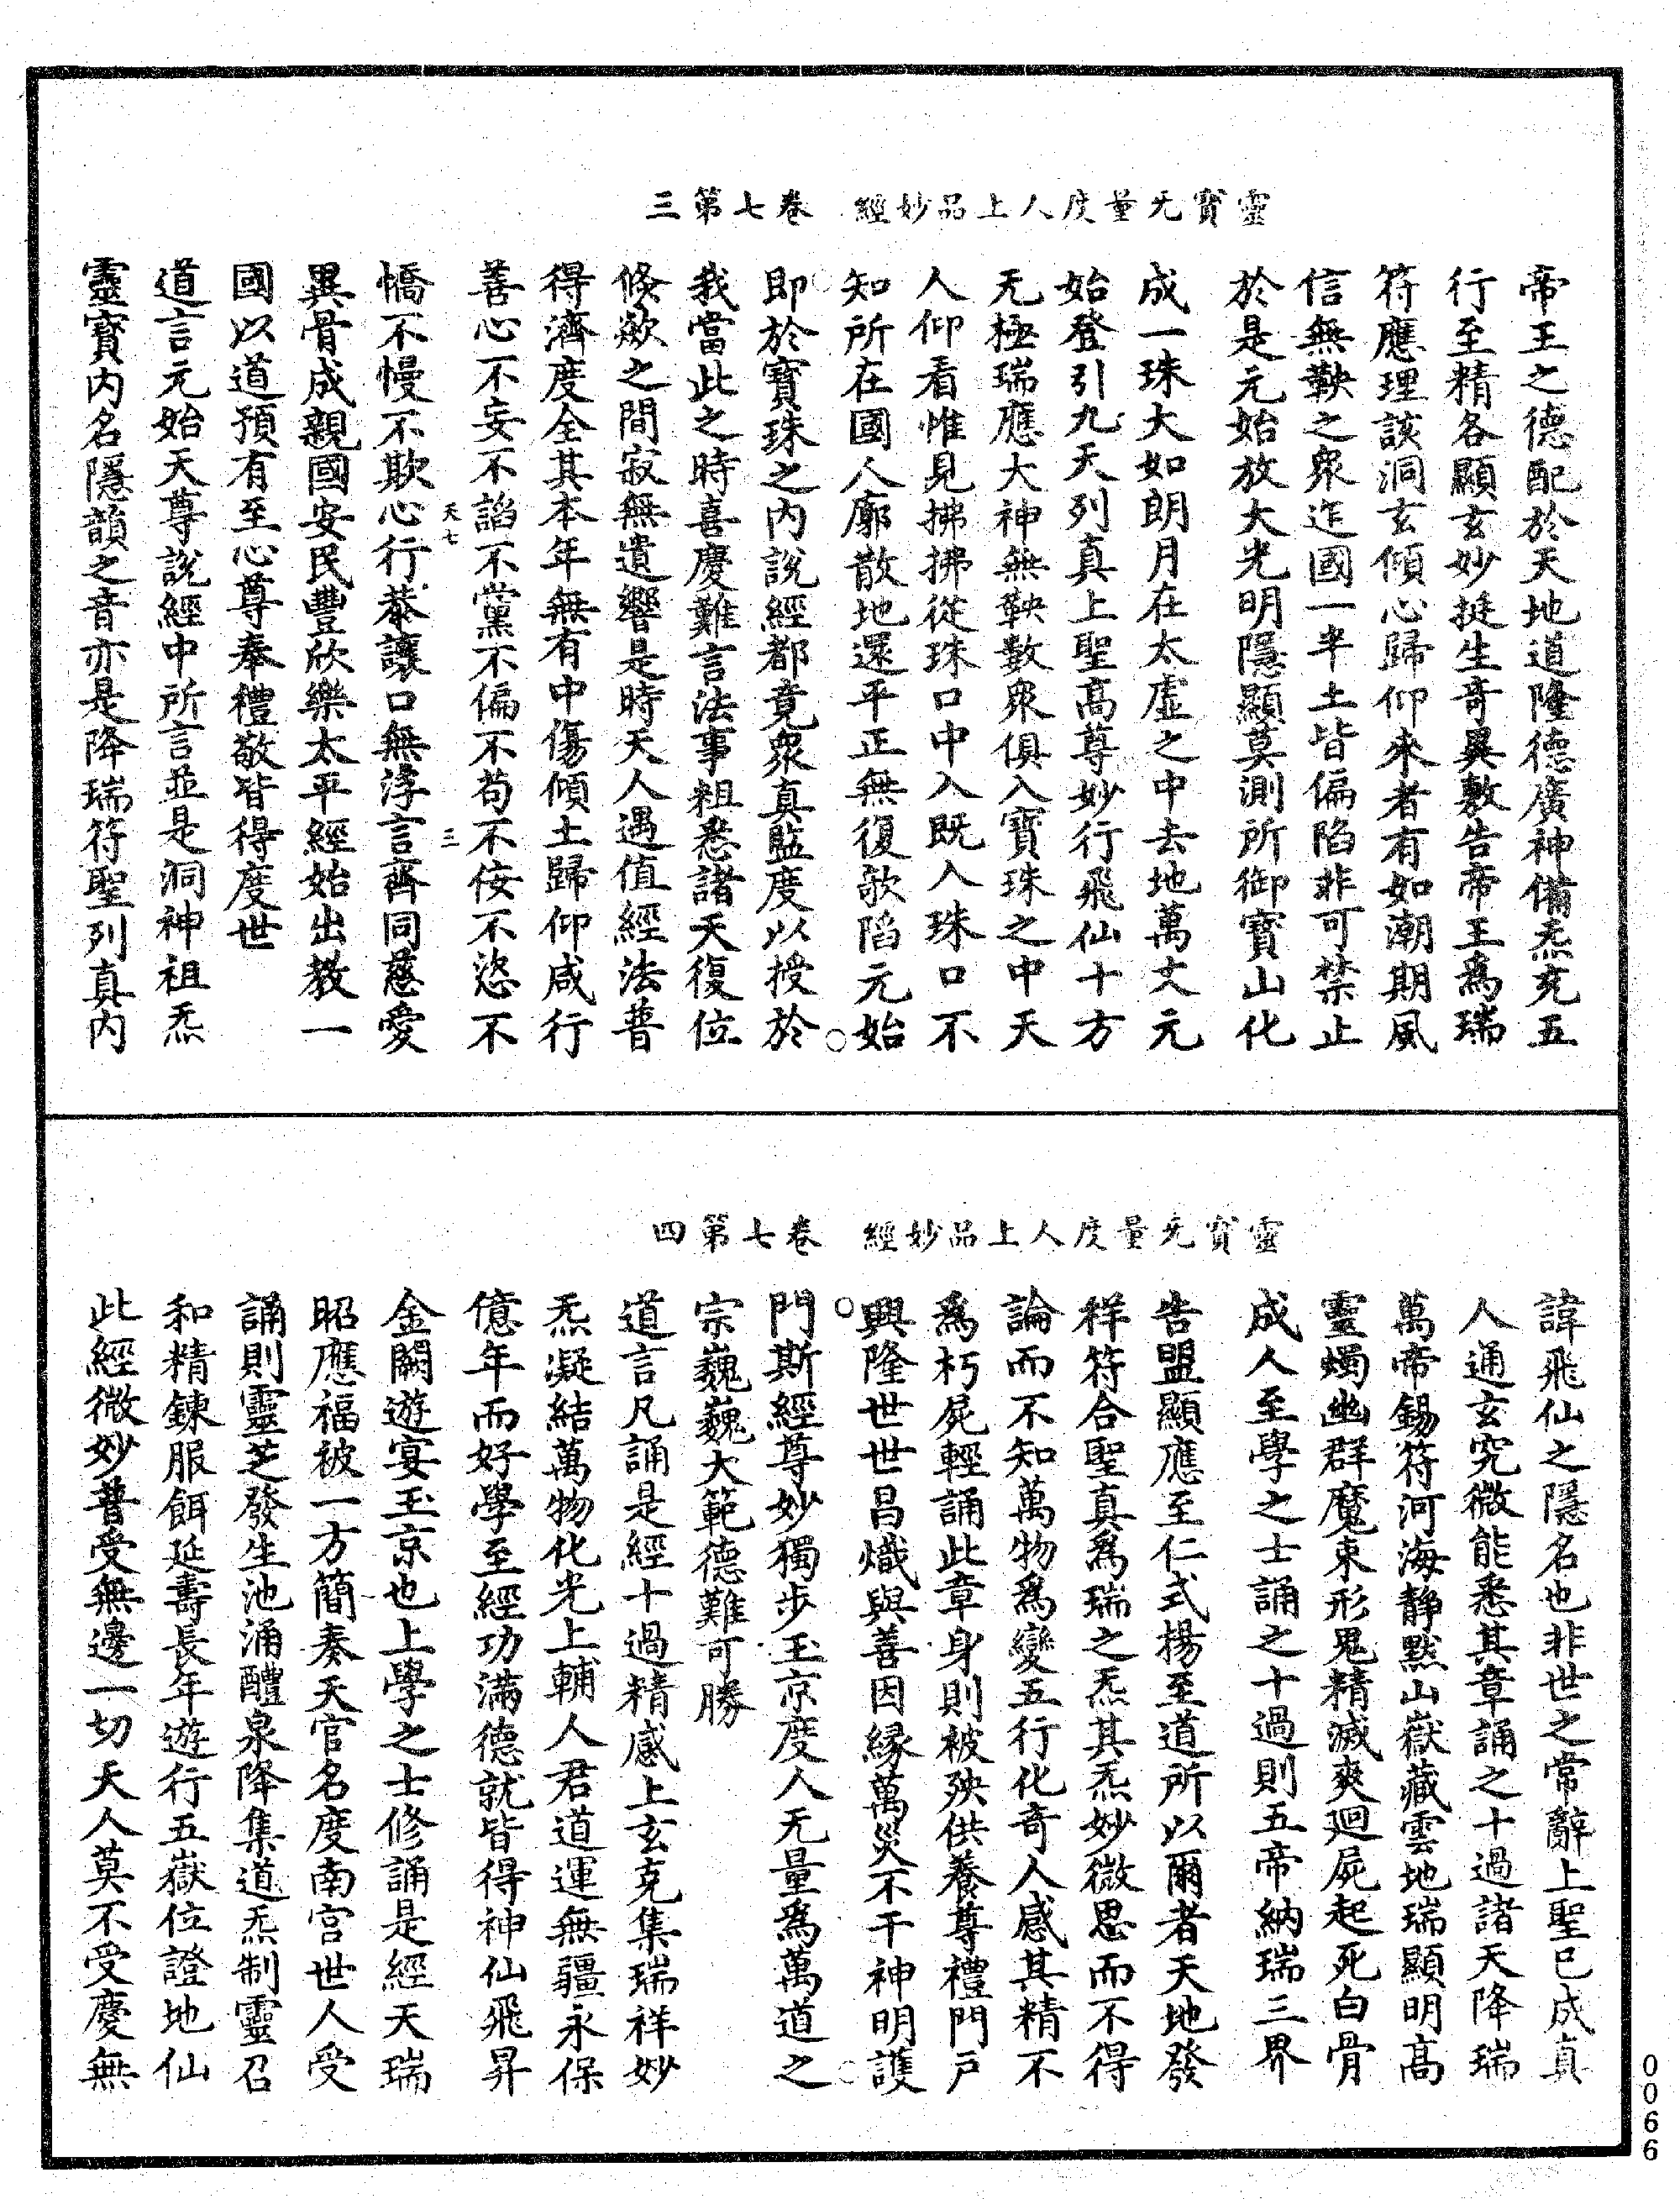 靈寶无量度人上品妙經　卷七第三
帝王之德配於天地道隆德廣神備炁充五
行至精各顯玄妙挺生奇異敷告帝王為瑞
符應理該洞玄傾心歸仰來者有如潮期風
信無鞅之眾迮國一半土皆偏陷非可禁止
於是元始放大光明隱顯莫測所御寶山化
成一珠大如朗月在太虛之中去地萬丈元
始登引九天列真上聖高尊妙行飛仙十方
无極瑞應大神無鞅數眾俱入寶珠之中天
人仰看惟見拂拂從珠口中入既入珠口不
知所在國人廓散地還平正無復欹陷元始
即於寶珠之內說經都竟眾真監度以授於
我當此之時喜慶難言法事粗悉諸天復位
倏歘之間寂無遺響是時天人遇值經法普
得濟度全其本年無有中傷傾土歸仰咸行
善心不妄不諂不黨不偏不苟不佞不恣不
天七　三
憍不慢不欺心行恭讓口無浮言齊同慈愛
異骨成親國安民豐欣樂太平經始出教一
國以道預有至心尊奉禮敬皆得度世
道言元始天尊說經中所言並是洞神祖炁
靈寶內名隱韻之音亦是降瑞符聖列真內
靈寶无量度人上品妙經　卷七第四
諱飛仙之隱名也非世之常辭上聖已成真
人通玄究微能悉其章誦之十過諸天降瑞
萬帝錫符河海靜默山嶽藏雲地瑞顯明高
靈蠲幽群魔束形鬼精滅爽迴屍起死白骨
成人至學之士誦之十過則五帝納瑞三界
告盟顯應至仁式楊至道所以爾者天地發
祥符合聖真為瑞之炁其炁妙微思而不得
論而不知萬物為變五行化奇人感其精不
為朽屍輕誦此章身則被殃供養尊禮門戶
興隆世世昌熾與善因緣萬災不干神明護
門斯經尊妙獨步玉京度人无量為萬道之
宗巍巍大範德難可勝
道言凡誦是經十過精感上玄克集瑞祥妙
炁凝結萬物化光上輔人君道運無疆永保
億年而好學至經功滿德就皆得神仙飛昇
金闕遊宴玉京也上學之士修誦是經天瑞
昭應福被一方簡奏天官名度南宮世人受
誦則靈芝發生池涌醴泉降集道炁制靈召
和精鍊服餌延壽長年遊行五嶽位證地仙
此經微妙普受無邊一切天人莫不受慶無
0066